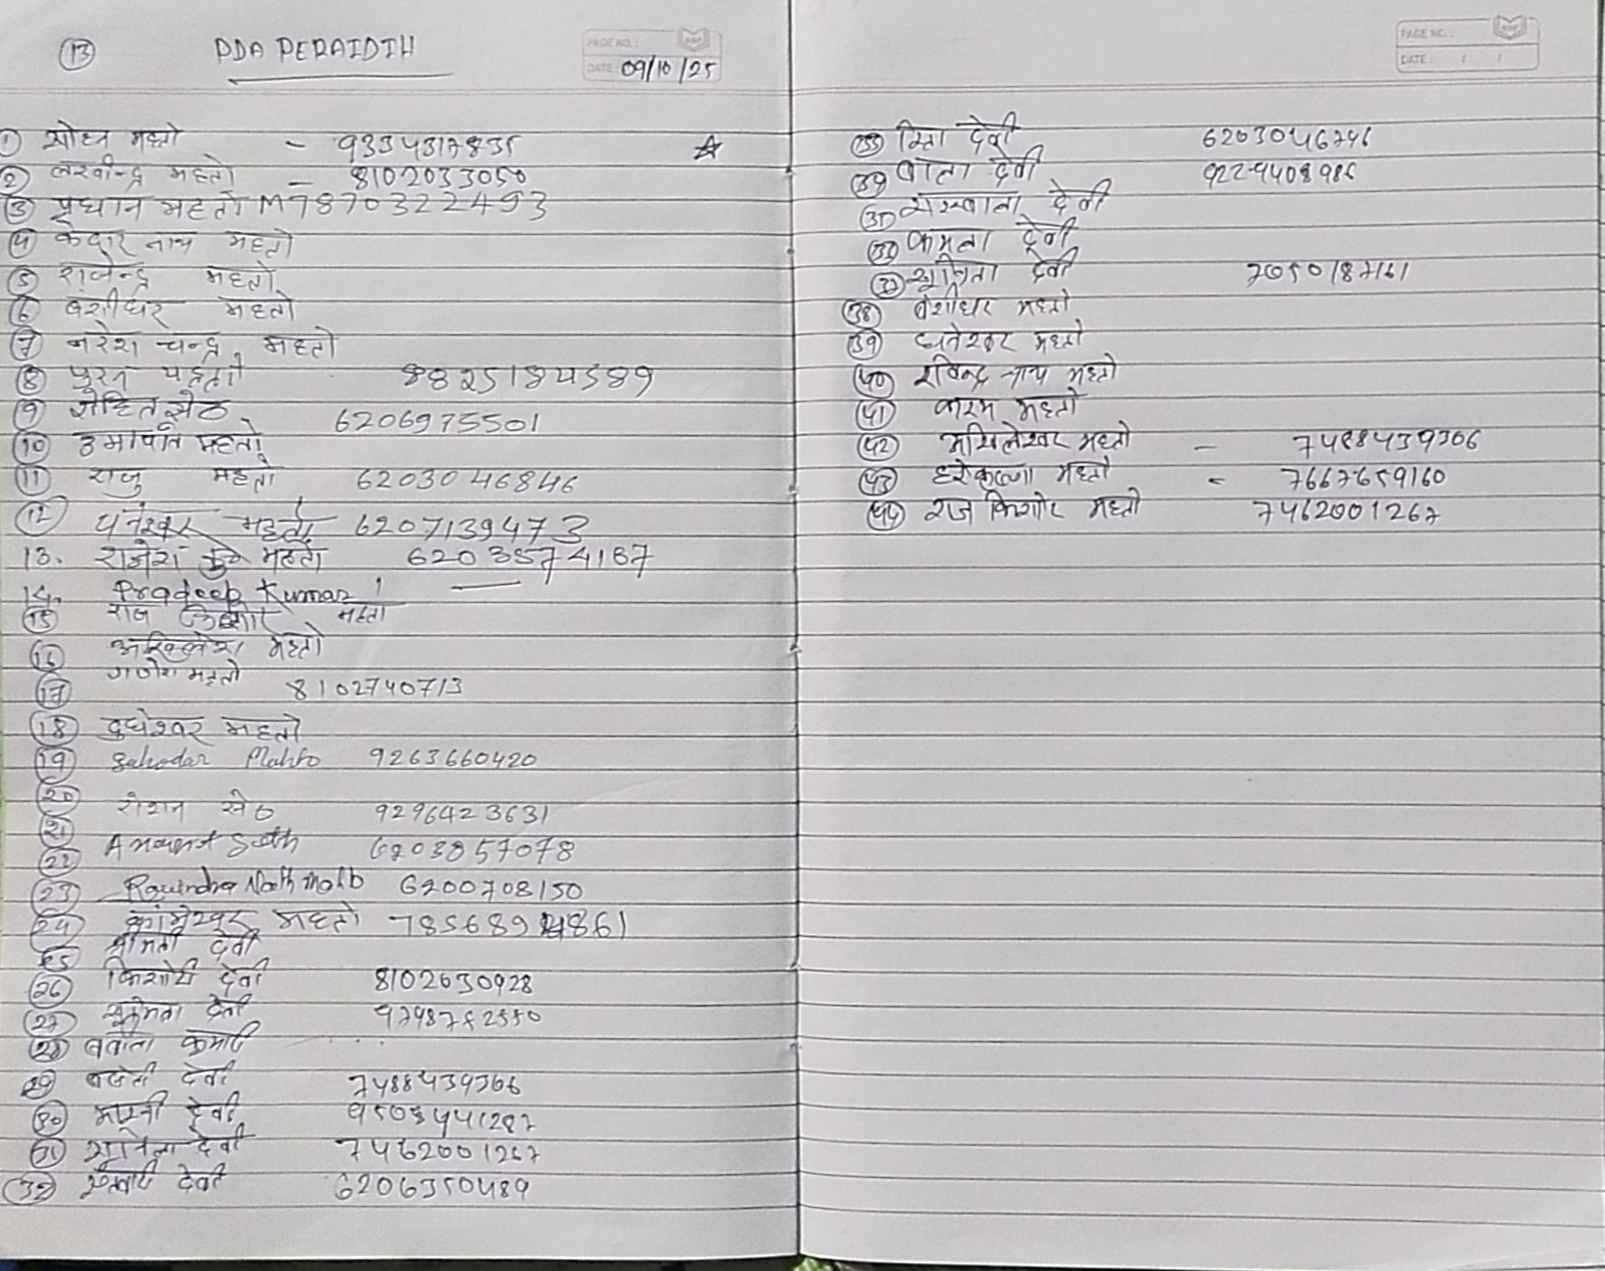 13 PDA PERAIDIH
PAGE NO.:
DATE: 09/10/25
① सोहन महतो - 9334317835
② लखीन्द्र महतो - 8102033050
③ प्रधान महतो M 7870322493
④ केदार नाथ महतो
⑤ राजेन्द्र महतो
⑥ बंशीधर महतो
⑦ नरेश चन्द्र महतो
⑧ पुरन महतो 8825184589
⑨ रोहित सेठ 6206975501
⑩ उमापति महतो
⑪ राजु महतो 6203046846
⑫ धनेश्वर महतो 6207139473
13. राजेश कु० महतो 6203574167
14. Pradeep Kumar
⑮ राज किशोर महतो
⑯ अखिलेश महतो
⑰ गणेश महतो 8102740713
⑱ दुधेश्वर महतो
⑲ Sahodar Mahto 9263660420
⑳
㉑ रोशन सेठ 9296423631
㉒ Anant Seth 6203857078
㉓ Ravindra Nath Mahto 6200708150
㉔ कामेश्वर महतो 7856894861
㉕ श्रीमती देवी
㉖ किशोरी देवी 8102630928
㉗ देवी
㉘ बबीता कुमारी
㉙ देवी 7488439366
㉚ देवी
㉛ देवी 7462001267
㉜ देवी 6206350489
PAGE NO.:
DATE: / /
㉝ रिता देवी 6203046746
㉞ देवी
㉟ देवी
㊱ देवी
㊲ देवी
㊳ बंशीधर महतो
㊴ धनेश्वर महतो
㊵ रविन्द्र नाथ महतो
㊶ करम महतो
㊷ अखिलेश्वर महतो - 7488439306
㊸ हरेकृष्णा महतो - 7667659160
㊹ राज किशोर महतो 7462001267